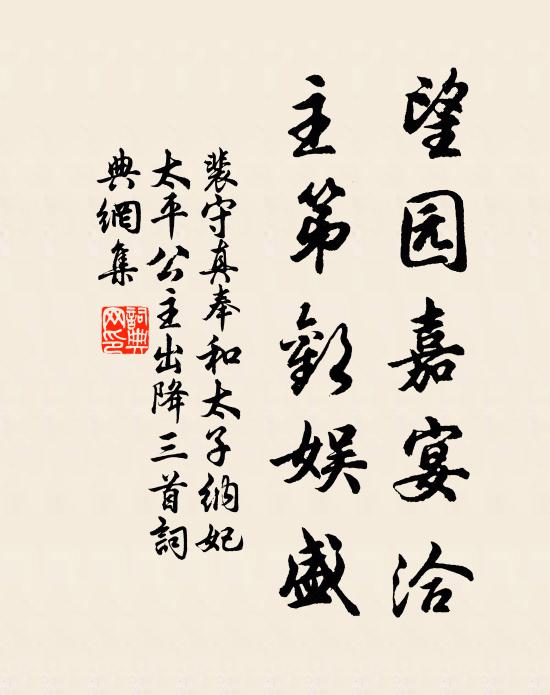 望园嘉宴洽
主第歡娱盛
裴守真奉和太子納妃
太平公主出降三首詞
典網集
詞典
网印